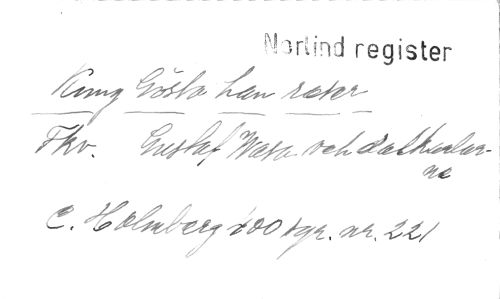 Norlind register
Kung Gösta han rater
Fkv. Gustaf Wasa och dalkarlar-
na
C. Holmberg 100 sgr. nr. 221